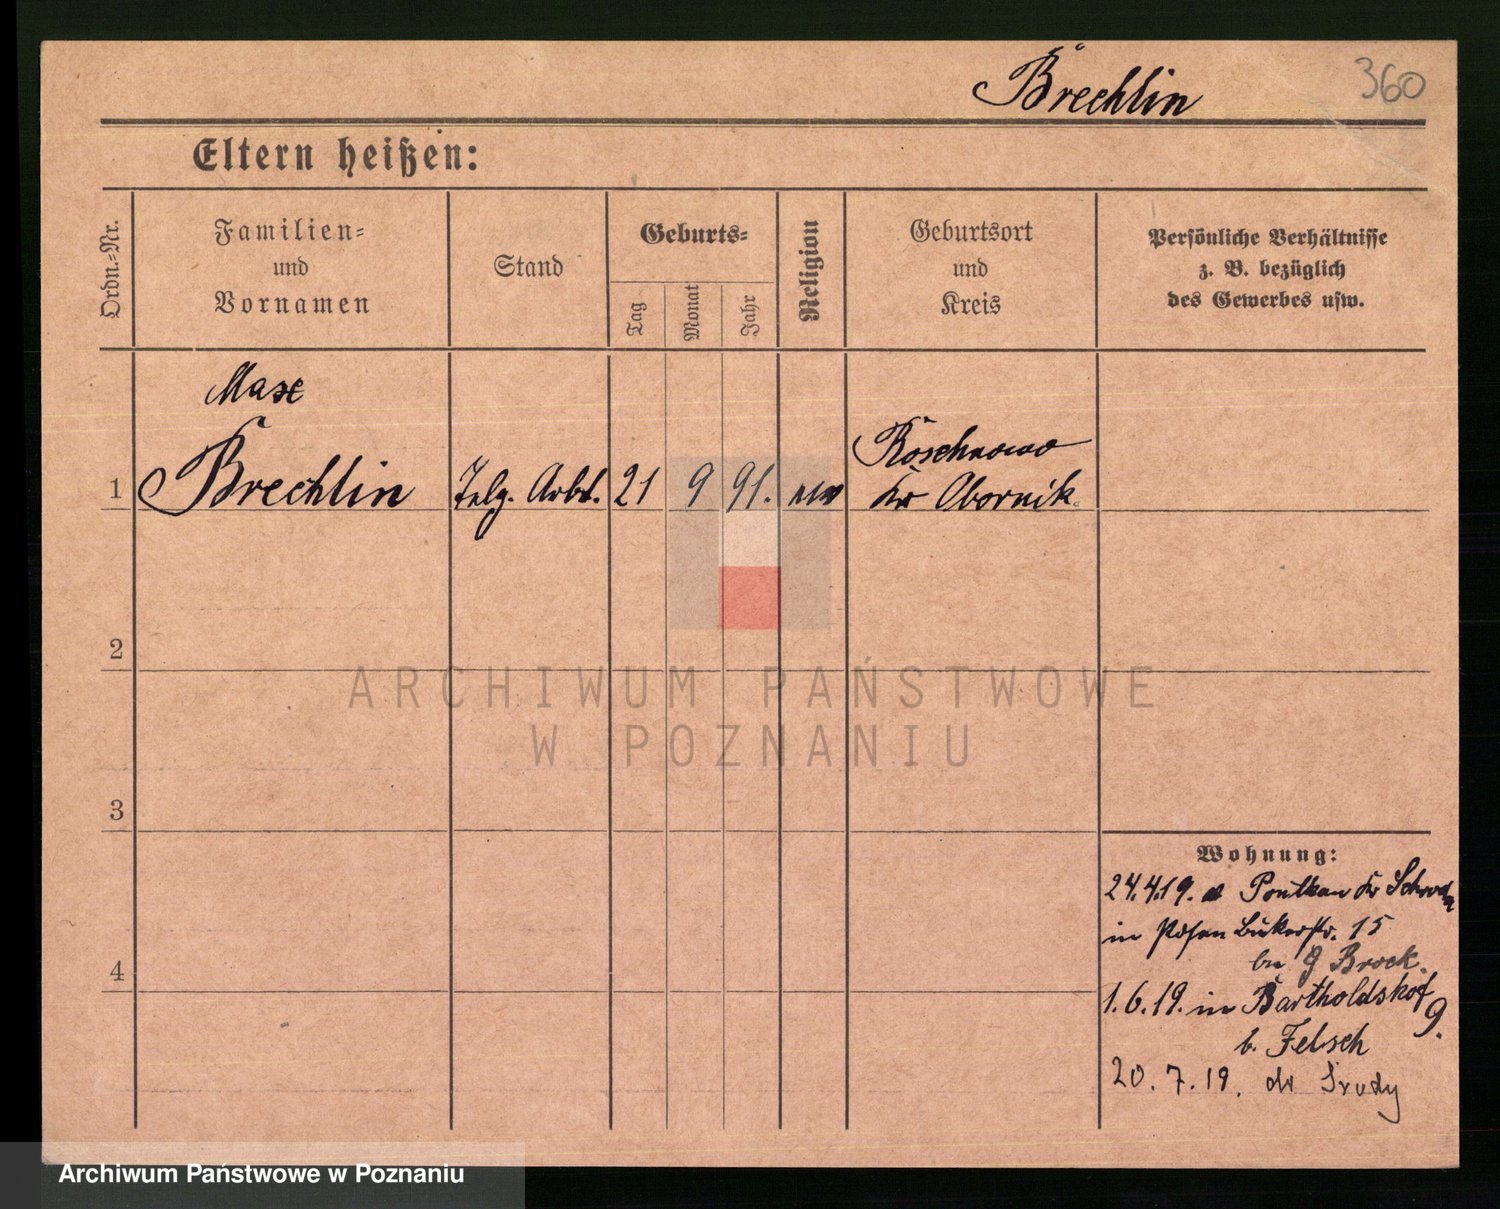 Brechlin 360
Eltern heißen:
Ordn.-Nr.
Familien-
und
Vornamen
Stand
Geburts-
Tag
Monat
Jahr
Religion
Geburtsort
und
Kreis
Persönliche Verhältnisse
z. B. bezüglich
des Gewerbes usw.
Max
1 Brechlin Telg. Arbt. 21 9 91.
Kr Obornik
2
3
4
ARCHIWUM PAŃSTWOWE
W POZNANIU
Wohnung:
24.4.19. Kr Schroda
in Posen Bukerstr. 15
bei G Brock.
1.6.19. in Bartholdshof 9.
b. Felsch
20.7.19. do Środy
Archiwum Państwowe w Poznaniu